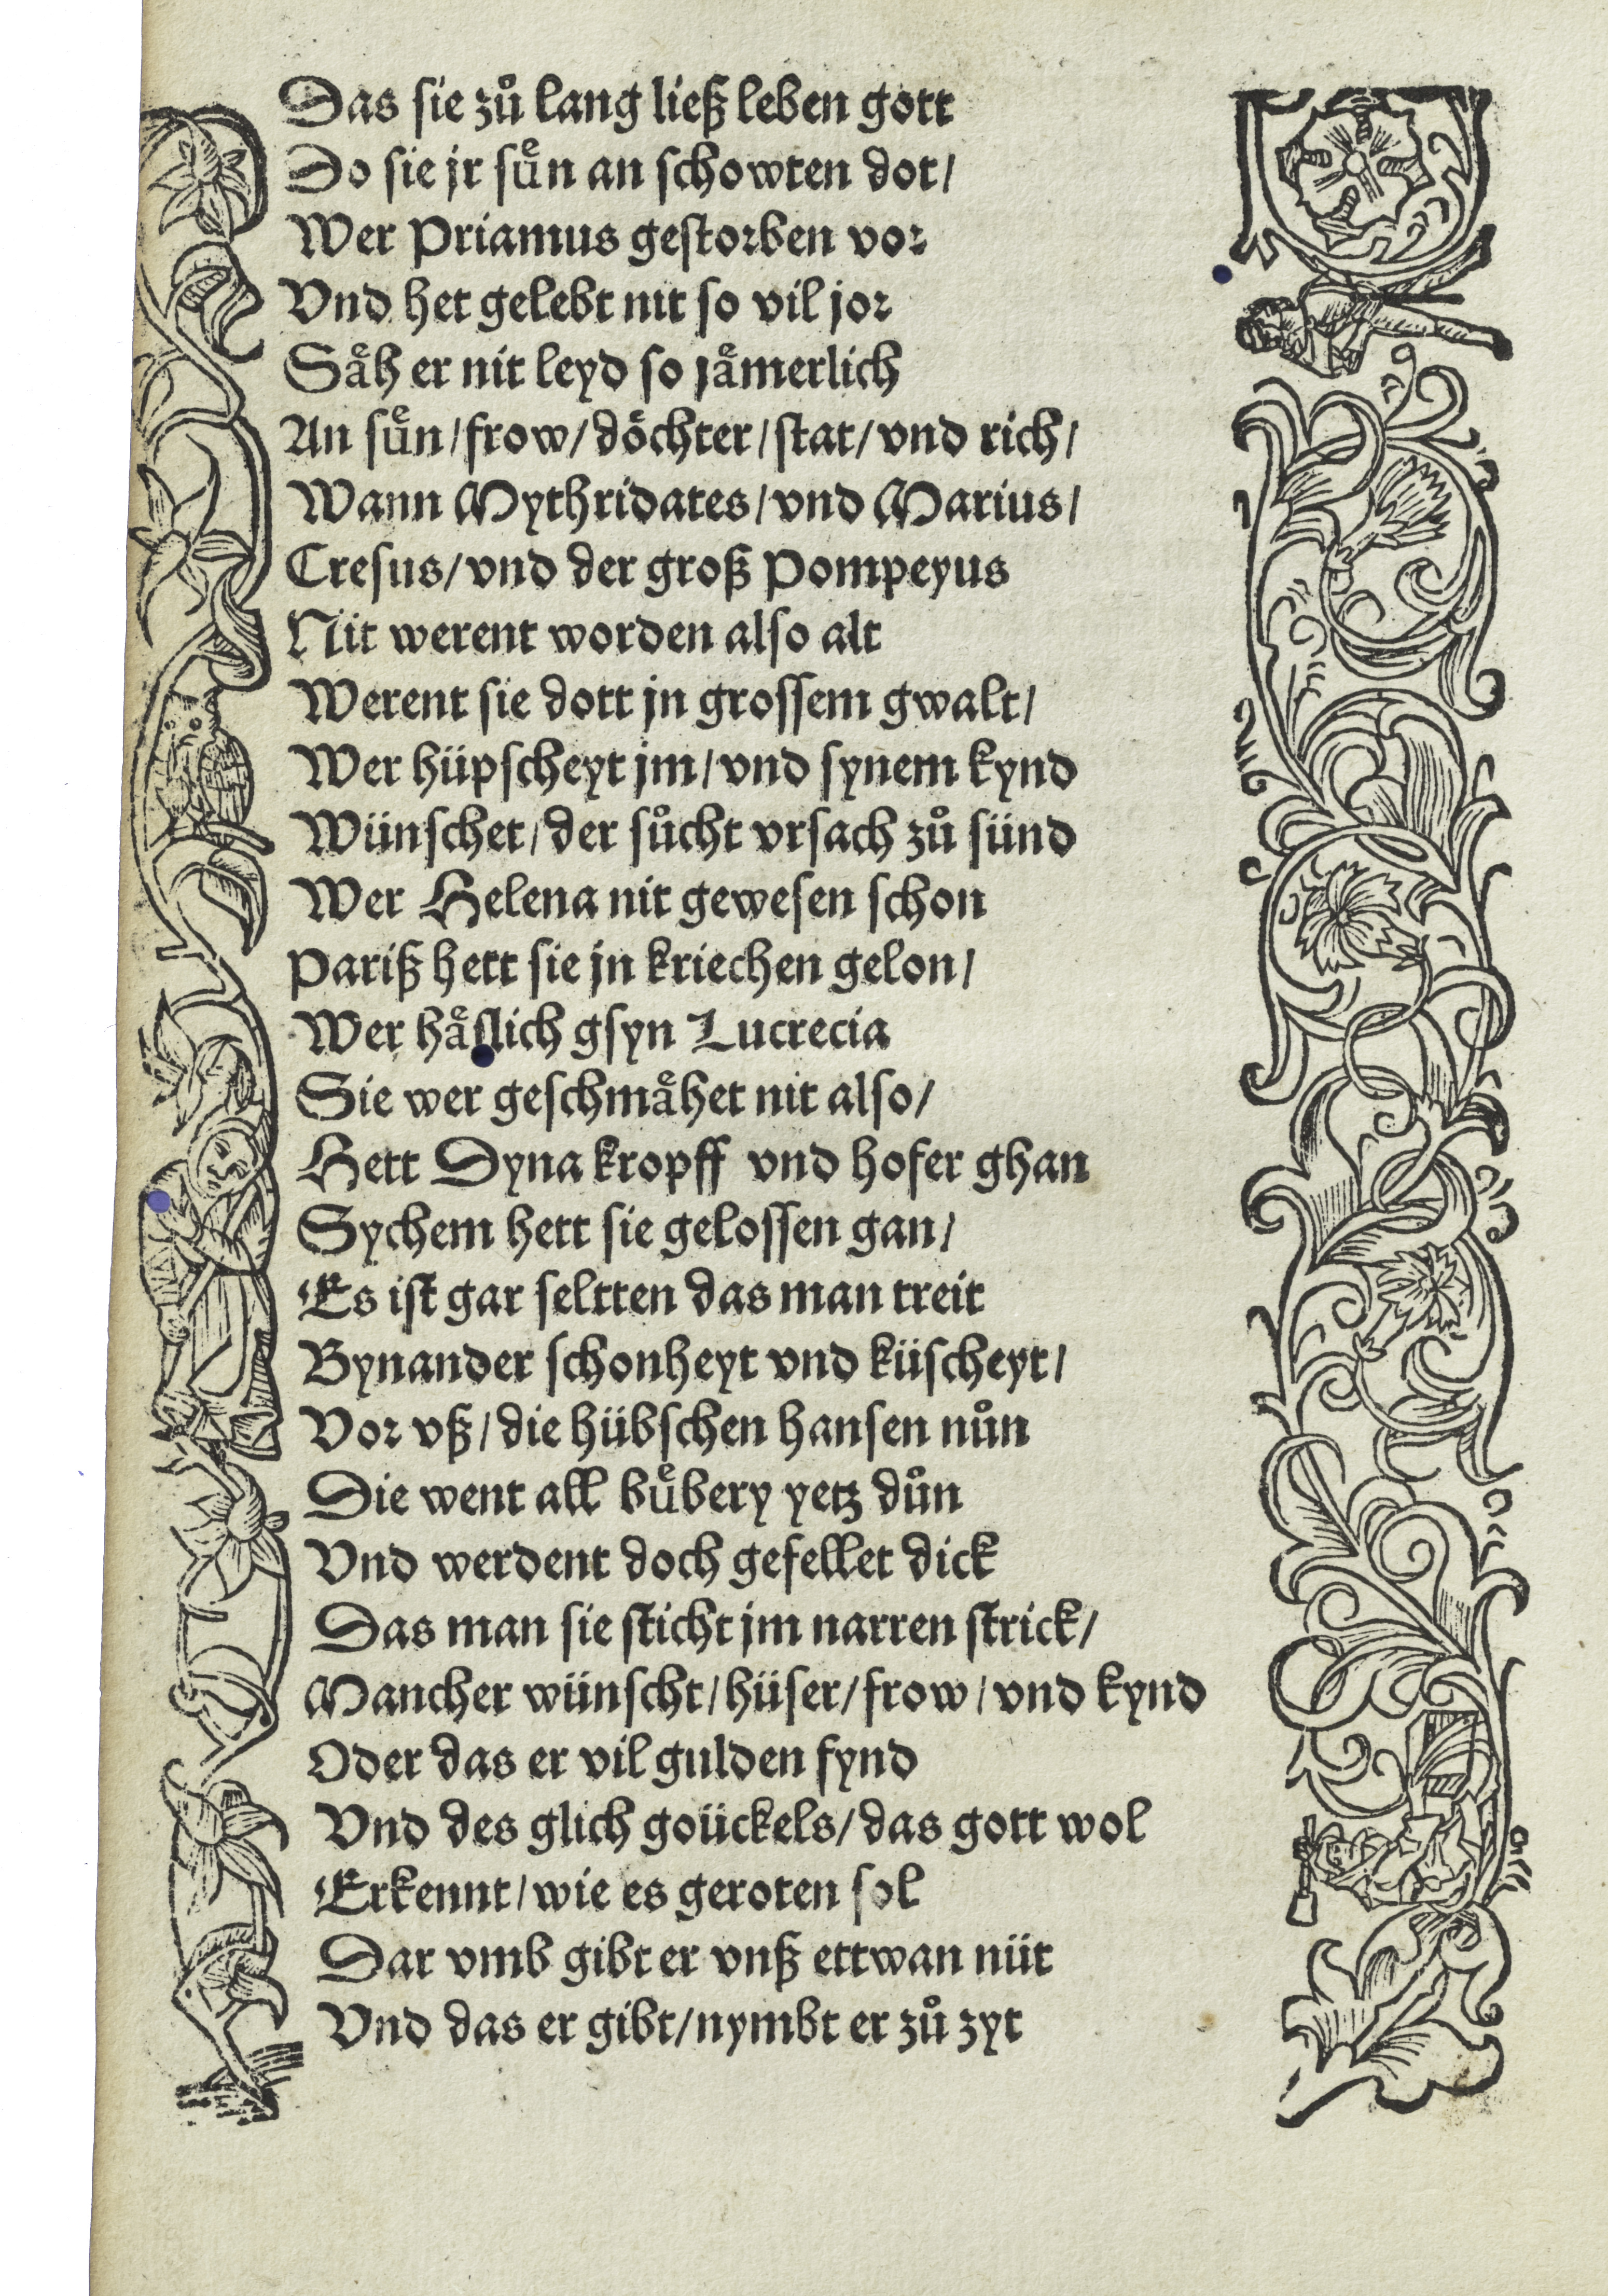 Das sie zuͦ lang ließ leben gott
Do sie jr suͤn an schowten dot/
Wer Priamus gestorben vor
Vnd het gelebt nit so vil jor
Saͤh er nit leyd so jaͤmerlich
An suͤn/frow/döchter/stat/vnd rich/
Wann Mythridates/vnd Marius/
Cresus/vnd der groß Pompeyus
Nit werent worden also alt
Werent sie dott jn grossem gwalt/
Wer hüpscheyt jm/vnd synem kynd
Wünschet/der suͦcht vrsach zuͦ sünd
Wer Helena nit gewesen schon
Pariß hett sie jn kriechen gelon/
Wer haͤslich gsyn Lucrecia
Sie wer geschmaͤhet nit also/
Hett Dyna kropff vnd hofer ghan
Sychem hett sie gelossen gan/
Es ist gar seltten das man treit
Bynander schonheyt vnd küscheyt/
Vor vß/die hübschen hansen nuͦn
Die went all buͤbery yetz duͦn
Vnd werdent doch gefellet dick
Das man sie sticht jm narren strick/
Mancher wünscht/hüser/frow/vnd kynd
Oder das er vil gulden fynd
Vnd des glich goückels/das gott wol
Erkennt/wie es geroten sol
Dar vmb gibt er vnß ettwan nüt
Vnd das er gibt/nymbt er zuͦ zyt